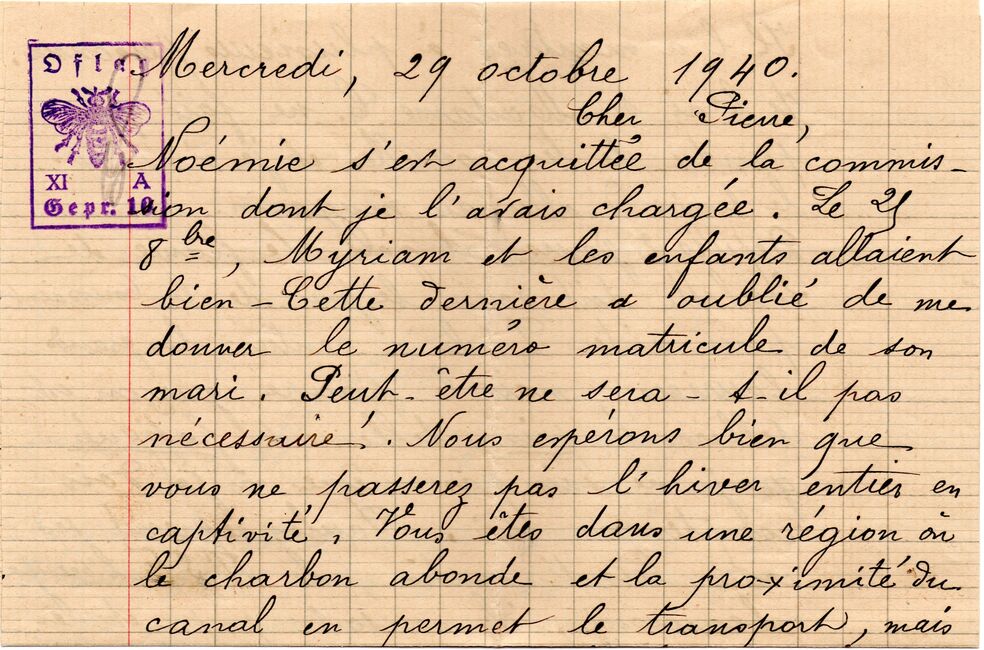 Oflag
XI A
Gepr. 10
Mercredi, 29 octobre 1940.
Cher Pierre,
Noémie s'est acquittée de la commis-
sion dont je l'avais chargée. Le 25
8bre, Myriam et les enfants allaient
bien - Cette dernière a oublié de me
donner le numéro matricule de son
mari. Peut-être ne sera-t-il pas
nécessaire!. Nous espérons bien que
vous ne passerez pas l'hiver entier en
captivité. Vous êtes dans une région où
le charbon abonde et la proximité du
canal en permet le transport, mais